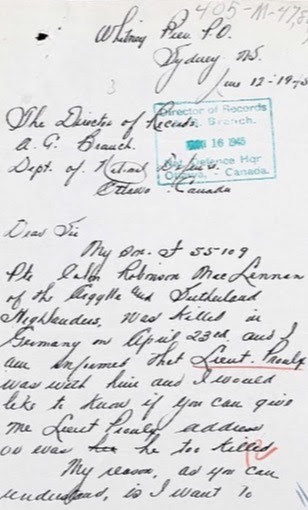 405-M-475
Whitney Pier. P.O.
Sydney N.S.
June 12-1945
The Director of Records,
A. G. Branch.
Dept. of National Defence.
Ottawa - Canada
Director of Records
Branch.
16 1945
Defence Hqr
Ottawa, - Canada.
Dear Sir
My son. F 55109
Pte Robinson MacLennan
of the Argylle and Sutherland
Highlanders, was killed in
Germany on April 23rd and I
am informed that Lieut. Proulx
was with him and I would
like to know if you can give
me Lieut Proulx address
or was he too killed
My reason, as you can
understand, is I want to